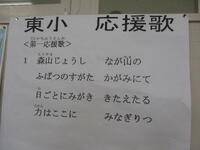 東小　応援歌
<第一応援歌>
1　森山じょうし　なが山の
ふばつのすがた　かがみにて
日ごとにみがき　きたえたる
力はここに　みなぎりつ